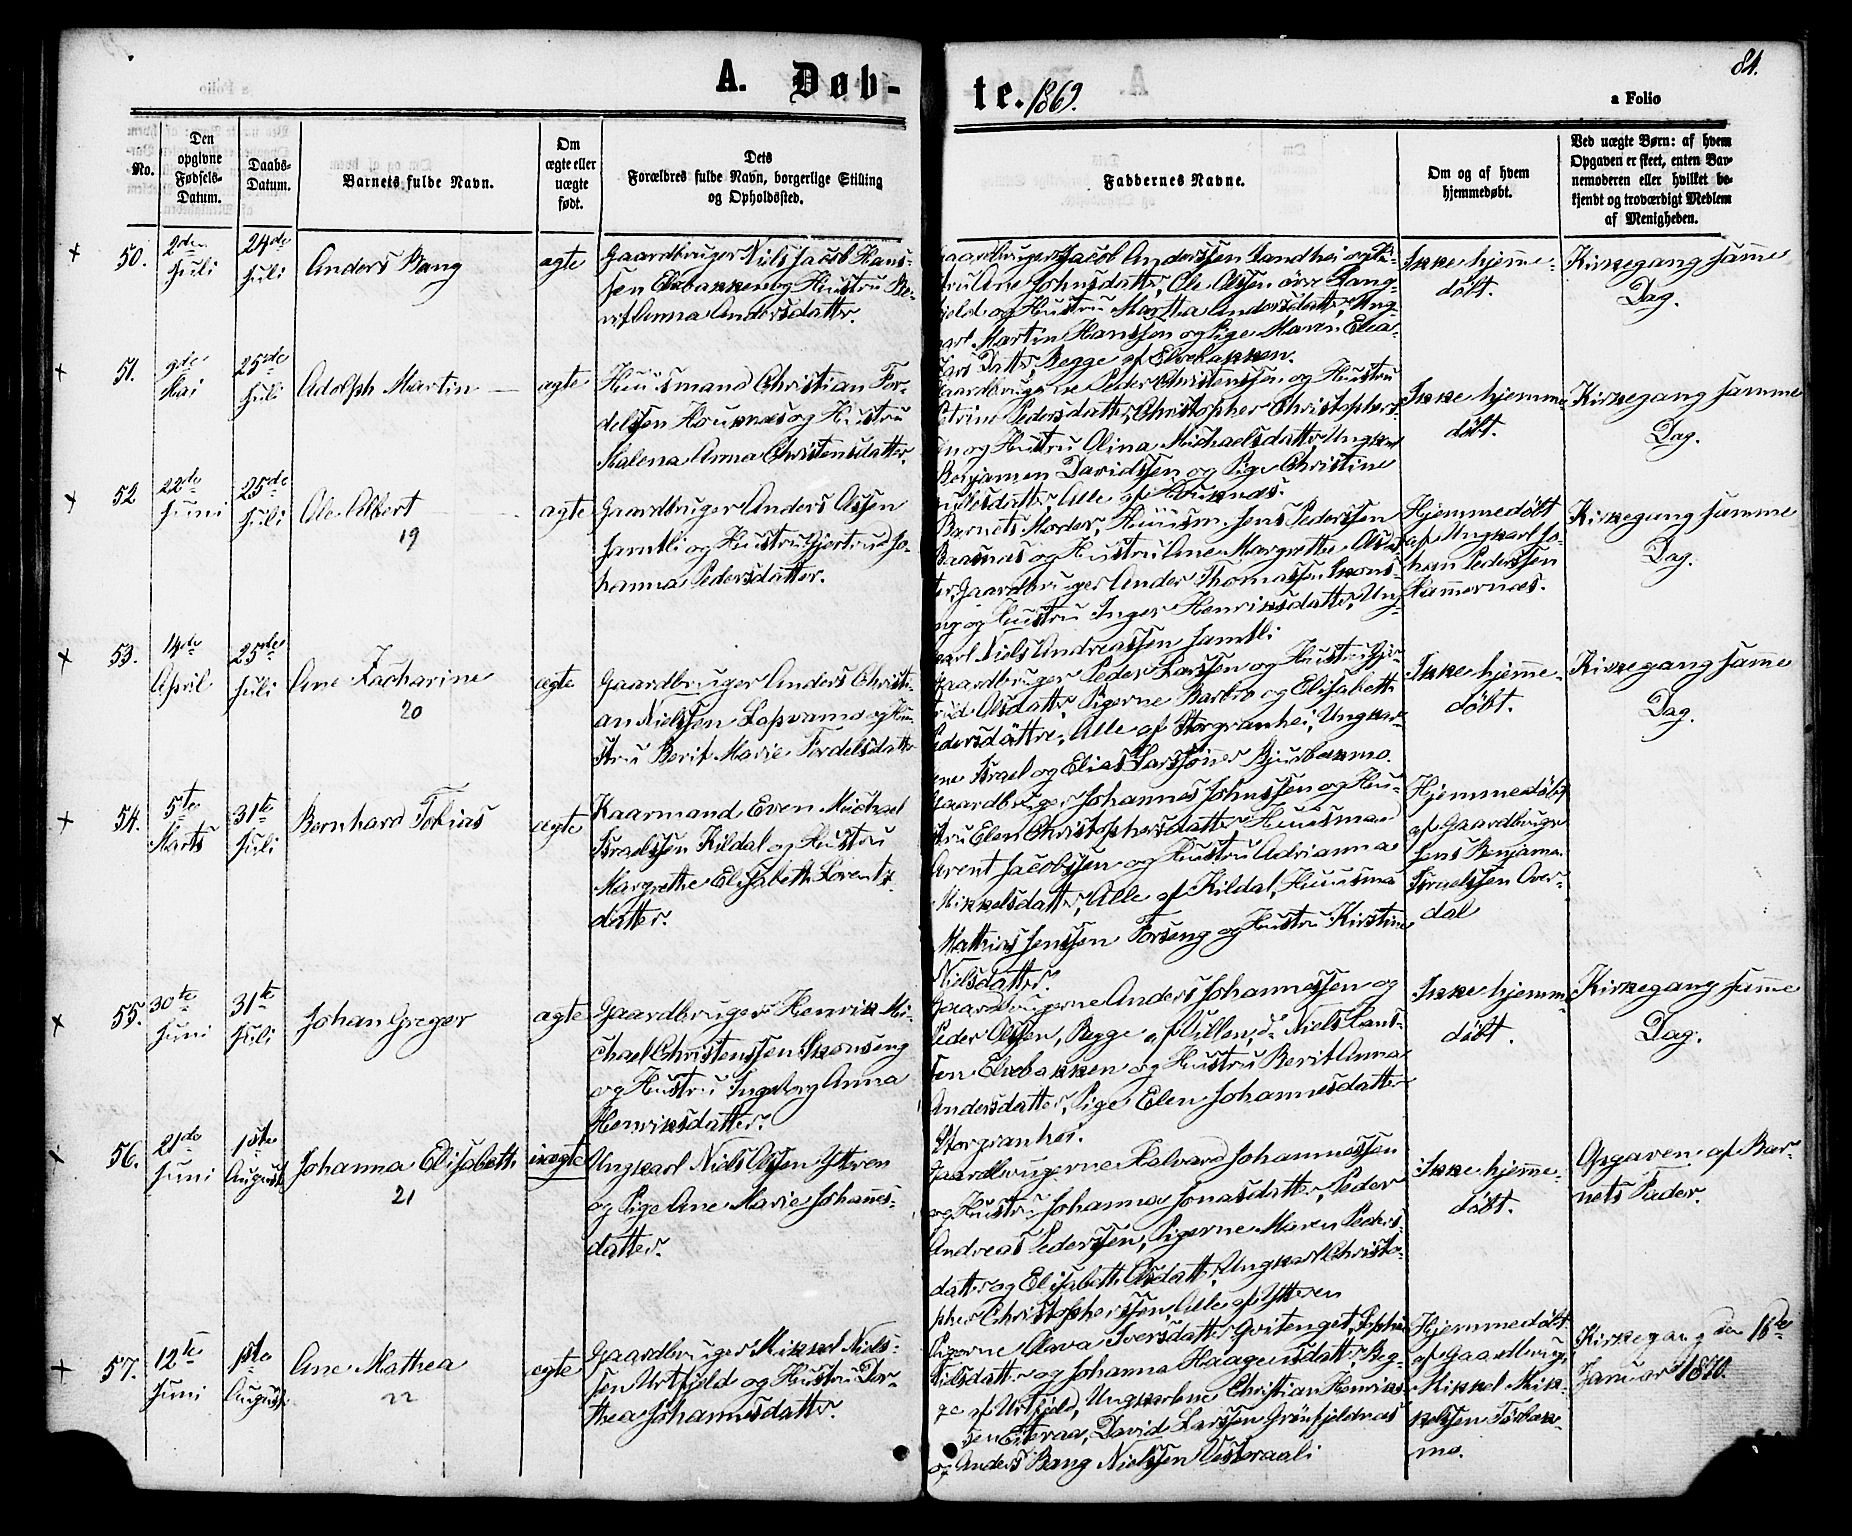 84.
A. Døb-
te. 1869.
a Folio
No.
Den opgivne Fødsels-Datum.
Daabs-Datum.
Barnets fulde Navn.
Om ægte eller uægte født.
Dets Forældres fulde Navn, borgerlige Stilling og Opholdssted.
Faddernes Navne.
Om og af hvem hjemmedøbt.
Ved uægte Børn: af hvem Opgaven er skeet, enten Barnemoderen eller hvilket bekjendt og troværdigt Medlem af Menigheden.
+ 50.
2den Juli
24de Juli
Anders Bang
ægte
Gaardbruger Niels Jacob Hans-
sen Elvbakken og Hustru Be-
rit Anna Andersdatter.
Gaardbruger Jacob Anderssen Sandhei og Hu-
stru Ane Johnsdatter, Ole Olssen övre Lang-
fjeld og Hustru Martha Andersdatter, Ung-
karl Martin Hanssen og Pige Maren Elea-
sars Datter, Begge af Elvebakken.
Ikke hjemme-
döbt.
Kirkegang samme
Dag.
+ 51.
9de Mai
25de Juli
Adolph Martin
ægte
Huusmand Christian For-
delssen Houknes og Hustru
Malena Anna Christensdatter.
Gaardbrugerne Peder Christenssen og Hustru
Petrine Pedersdatter, Christopher Christophers-
sen og Hustru Olina Michaelsdatter, Ungkarl
Benjamen Davidssen og Pige Christine
Alle af Houknes.
Ikke hjemme-
döbt.
Kirkegang samme
Dag.
+ 52
22de Juni
25de Juli
Ole Albert
19
ægte
Gaardbruger Anders Olssen
Jamtli og Hustru Gjertrud Jo-
hanna Pedersdatter.
Barnets Morder, Huusm. Jens Pederssen
Baasnes og Hustru Ane Margrethe Olsdat-
ter, Gaardbruger Ander Thomassen Skons-
eng og Hustru Inger Henriksdatter, Ung-
karl Niels Andreassen Jamtli
Hjemmedöbt
af Ungkarl Jo-
han Pederssen
Hammernes.
Kirkegang samme
Dag.
+ 53.
14de April
25de Juli
Ane Zacharine
20
ægte
Gaardbruger Anders Christi-
an Nielssen Lapvamo og Hu-
stru Berit Marie Fordelsdatter
Gaardbruger Peder Larssen og Hustru Gjer-
trud Olsdatter, Pigerne Barbro og Elisabeth
Pedersdöttre, Alle af Storgranhei, Ungkar-
lene Israel og Elias Larssöner Bjurbækmo.
Ikke hjemme-
döbt.
Kirkegang samme
Dag.
+ 54.
5te Marts
31te Juli
Bernhard Tobias
ægte
Kaarmand Even Michael
Israelssen Kildal og Hustru
Margrethe Elisabeth Lorentz-
datter.
Gaardbruger Johannes Johnssen og Hu-
stru Elen Christophersdatter, Huusmand
Arent Jacobssen og Hustru Adrianna
Mikkelsdatter, Alle af Kildal, Huusmand
Mathias Jenssen Forseng og Hustru Kirstine
Nielsdatter.
Hjemmedöbt
af Gaardbruger
Jens Benjamin
Israelssen Over-
dal
+ 55.
30te Juni
31te Juli
Johan Greger
ægte
Gaardbruger Henrik Mi-
chael Christenssen Skonseng
og Hustru Ingeborg Anna
Henriksdatter.
Gaardbrugerne Anders Johannessen og
Peder Olssen, Begge af Villen, do Niels Hans-
sen Elvebakken og Hustru Berit Anna
Andersdatter, Pige Elen Johannesdatter
Storgranhei.
Ikke hjemme
döbt.
Kirkegang samme
Dag.
56.
21de Juni
1ste August
Johanna Elisabeth
21
uægte
Ungkarl Niels Olssen Ytteren
og Pige Ane Marie Johannes-
datter.
Gaardbrugerne Halvard Johannessen
og Hustru Johanna Jonasdatter, Peder
Andreas Pederssen, Pigerne Maren Peders-
datter og Elisabeth Olsdatter, Ungkarl Christo-
pher Christopherssen, Alle af Ytteren
Ikke hjemme-
döbt.
Opgaven af Bar-
nets Fader.
+ 57.
12te Juni
1ste August
Ane Mathea
22
ægte
Gaardbruger Mikkel Niels-
sen Urtfjeld og Hustru Dor-
thea Johannesdatter.
Pigerne Olava Iversdatter Qvitenget, Sophie
Nielsdatter og Johanna Haagensdatter, Beg-
ge af Urtfjeld, Ungkarlene Christian Henriks-
sen Eiteraa, David Larssen Grönfjeldnæs
og Anders Bang Nielssen Vesteraali
Hjemmedöbt
af Gaardbruger
Mikkel Mik-
kelssen Törbæk-
mo.
Kirkegang den 16de
Januar 1870.